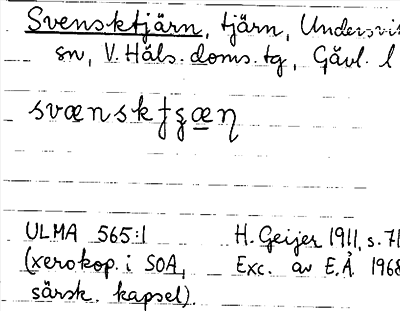 Svensktjärn, tjärn, Undersvi
sn, V. Häls. doms. tg, Gävl. l
svænskʈʂæɳ
ULMA 565:1 H. Geijer 1911, s. 71
(xerokop. i SOA, Exc. av E.Å. 1968
särsk. kapsel).